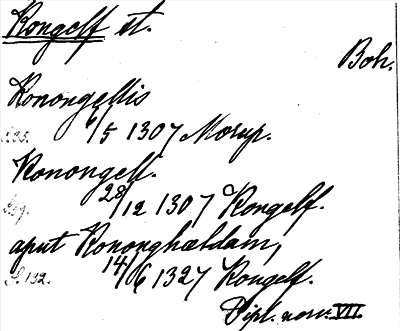 Kongelf st.
Boh.
Konongellis
6/5 1307 Morup.
Konongelf.
28/12 1307 Kongelf.
aput Kononghældam,
S. 132. 14/6 1327 Kongelf.
Dipl. norv. VII.